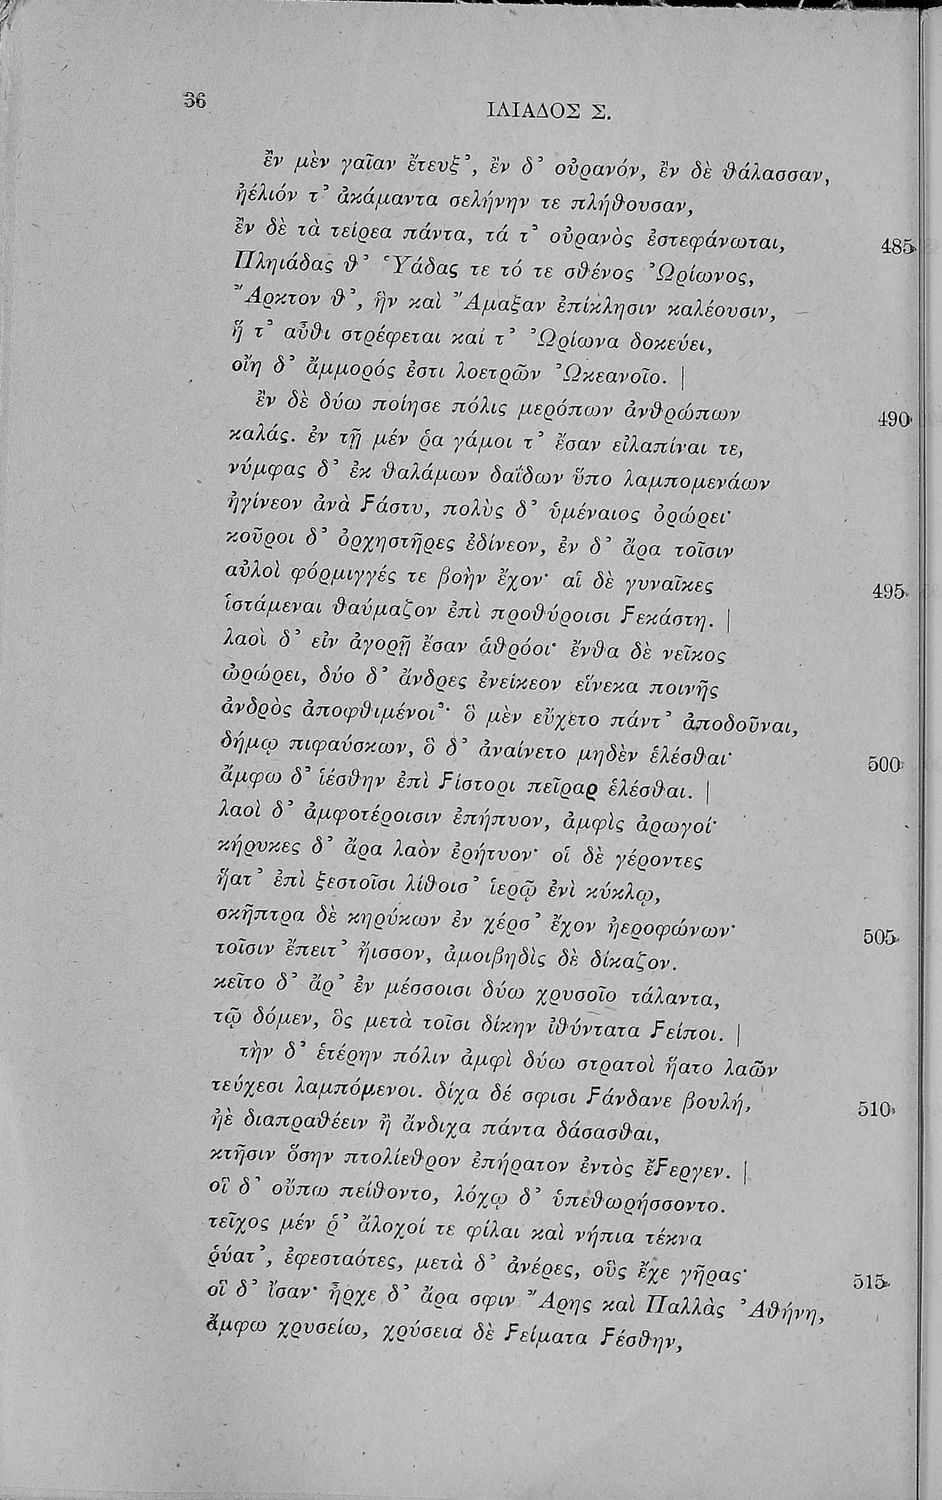 36
ΙΛΙΑΔΟΣ Σ.
ἓν μὲν γαῖαν ἔτευξ᾽, ἓν δ᾽ οὐρανόν, ἓν δὲ θάλασσαν,
ἠέλιόν τ᾽ ἀκάμαντα σελήνην τε πλήθουσαν,
ἓν δὲ τὰ τείρεα πάντα, τά τ᾽ οὐρανὸς ἐστεφάνωται, 485
Πληιάδας θ᾽ Ὑάδας τε τό τε σθένος Ὠρίωνος,
Ἄρκτον θ᾽, ἣν καὶ Ἄμαξαν ἐπίκλησιν καλέουσιν,
ἥ τ᾽ αὖθι στρέφεται καί τ᾽ Ὠρίωνα δοκεύει,
οἴη δ᾽ ἄμμορός ἐστι λοετρῶν Ὠκεανοῖο. |
ἓν δὲ δύω ποίησε πόλις μερόπων ἀνθρώπων 490
καλάς. ἐν τῇ μέν ῥα γάμοι τ᾽ ἔσαν εἰλαπίναι τε,
νύμφας δ᾽ ἐκ θαλάμων δαΐδων ὕπο λαμπομενάων
ἠγίνεον ἀνὰ ϝάστυ, πολὺς δ᾽ ὑμέναιος ὀρώρει·
κοῦροι δ᾽ ὀρχηστῆρες ἐδίνεον, ἐν δ᾽ ἄρα τοῖσιν
αὐλοὶ φόρμιγγές τε βοὴν ἔχον· αἱ δὲ γυναῖκες 495
ἱστάμεναι θαύμαζον ἐπὶ προθύροισι ϝεκάστη. |
λαοὶ δ᾽ εἰν ἀγορῇ ἔσαν ἁθρόοι· ἔνθα δὲ νεῖκος
ὠρώρει, δύο δ᾽ ἄνδρες ἐνείκεον εἵνεκα ποινῆς
ἀνδρὸς ἀποφθιμένοι᾽· ὃ μὲν εὔχετο πάντ᾽ ἀποδοῦναι,
δήμῳ πιφαύσκων, ὃ δ᾽ ἀναίνετο μηδὲν ἑλέσθαι· 500
ἄμφω δ᾽ ἱέσθην ἐπὶ ϝίστορι πεῖραρ ἑλέσθαι. |
λαοὶ δ᾽ ἀμφοτέροισιν ἐπήπυον, ἀμφὶς ἀρωγοί·
κήρυκες δ᾽ ἄρα λαὸν ἐρήτυον· οἱ δὲ γέροντες
ἥατ᾽ ἐπὶ ξεστοῖσι λίθοισ᾽ ἱερῷ ἐνὶ κύκλῳ,
σκῆπτρα δὲ κηρύκων ἐν χέρσ᾽ ἔχον ἠεροφώνων· 505
τοῖσιν ἔπειτ᾽ ἤισσον, ἀμοιβηδὶς δὲ δίκαζον.
κεῖτο δ᾽ ἄρ᾽ ἐν μέσσοισι δύω χρυσοῖο τάλαντα,
τῷ δόμεν, ὃς μετὰ τοῖσι δίκην ἰθύντατα ϝείποι. |
τὴν δ᾽ ἑτέρην πόλιν ἀμφὶ δύω στρατοὶ ἥατο λαῶν
τεύχεσι λαμπόμενοι. δίχα δέ σφισι ϝάνδανε βουλή, 510
ἠὲ διαπραθέειν ἢ ἄνδιχα πάντα δάσασθαι,
κτῆσιν ὅσην πτολίεθρον ἐπήρατον ἐντὸς ἔϝεργεν. |
οἳ δ᾽ οὔπω πείθοντο, λόχῳ δ᾽ ὑπεθωρήσσοντο.
τεῖχος μέν ῥ᾽ ἄλοχοί τε φίλαι καὶ νήπια τέκνα
ῥύατ᾽, ἐφεσταότες, μετὰ δ᾽ ἀνέρες, οὓς ἔχε γῆρας· 515
οἳ δ᾽ ἴσαν· ἦρχε δ᾽ ἄρα σφιν Ἄρης καὶ Παλλὰς Ἀθήνη,
ἄμφω χρυσείω, χρύσεια δὲ ϝείματα ϝέσθην,